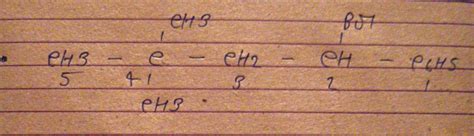 CH3 Br
CH3 - C - CH2 - CH - C6H5
5 4 3 2 1
CH3